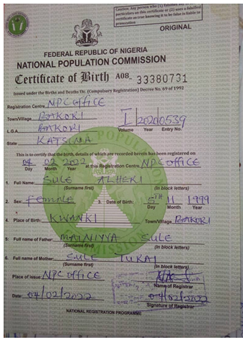 ORIGINAL
FEDERAL REPUBLIC OF NIGERIA
NATIONAL POPULATION COMMISSION
Certificate of Birth A08, 33380731
Issued under the Births and Deaths Etc. (Compulsory Registration) Decree No. 69 of 1992
Registration Centre NPC OFFICE
Town/Village BAKORI
L.G.A. BAKORI
Volume Year Entry No.
STATE KATSINA
This is to certify that the birth, details of which are recorded herein has been registered on
04 02 2022 at NPC OFFICE
Day Month Year Registration Centre
1. Full Name SULE ALHERI
(Surname first) (In block letters)
2. Sex Female 3. Date of Birth 11 1999
Day Month Year
4. Place of Birth KWANKI BAKORI
Town/Village
5. Full name of Father SULE
(Surname first) (In block letters)
6. Full name of Mother SULE
(Surname first) (In block letters)
Place of Issue NPC OFFICE
Name of Registrar
Date 04/02/2022 04/02/2022
Signature of Registrar
NATIONAL REGISTRATION PROGRAMME